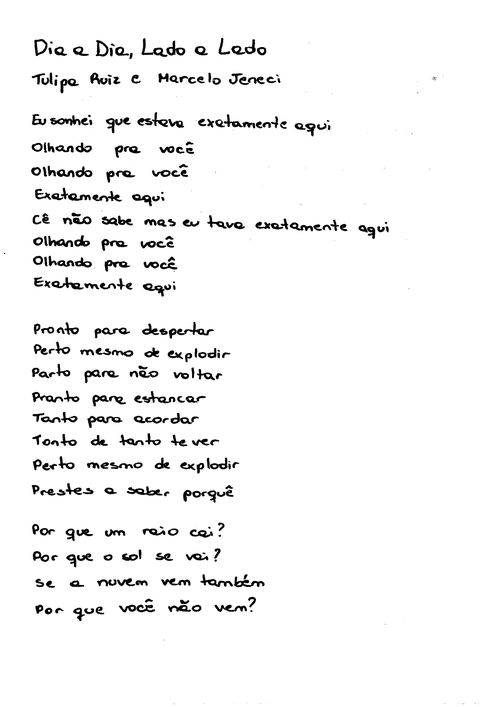 Dia a Dia, Lado a Lado
Tulipa Ruiz e Marcelo Jeneci
Eu sonhei que estava exatamente aqui
Olhando pra você
Olhando pra você
Exatamente aqui
Cê não sabe mas eu tava exatamente aqui
Olhando pra você
Olhando pra você
Exatamente aqui
Pronto para despertar
Perto mesmo de explodir
Parto para não voltar
Pranto para estancar
Tanto para acordar
Tonto de tanto te ver
Perto mesmo de explodir
Prestes a saber porquê
Por que um raio cai?
Por que o sol se vai?
Se a nuvem vem também
Por que você não vem?